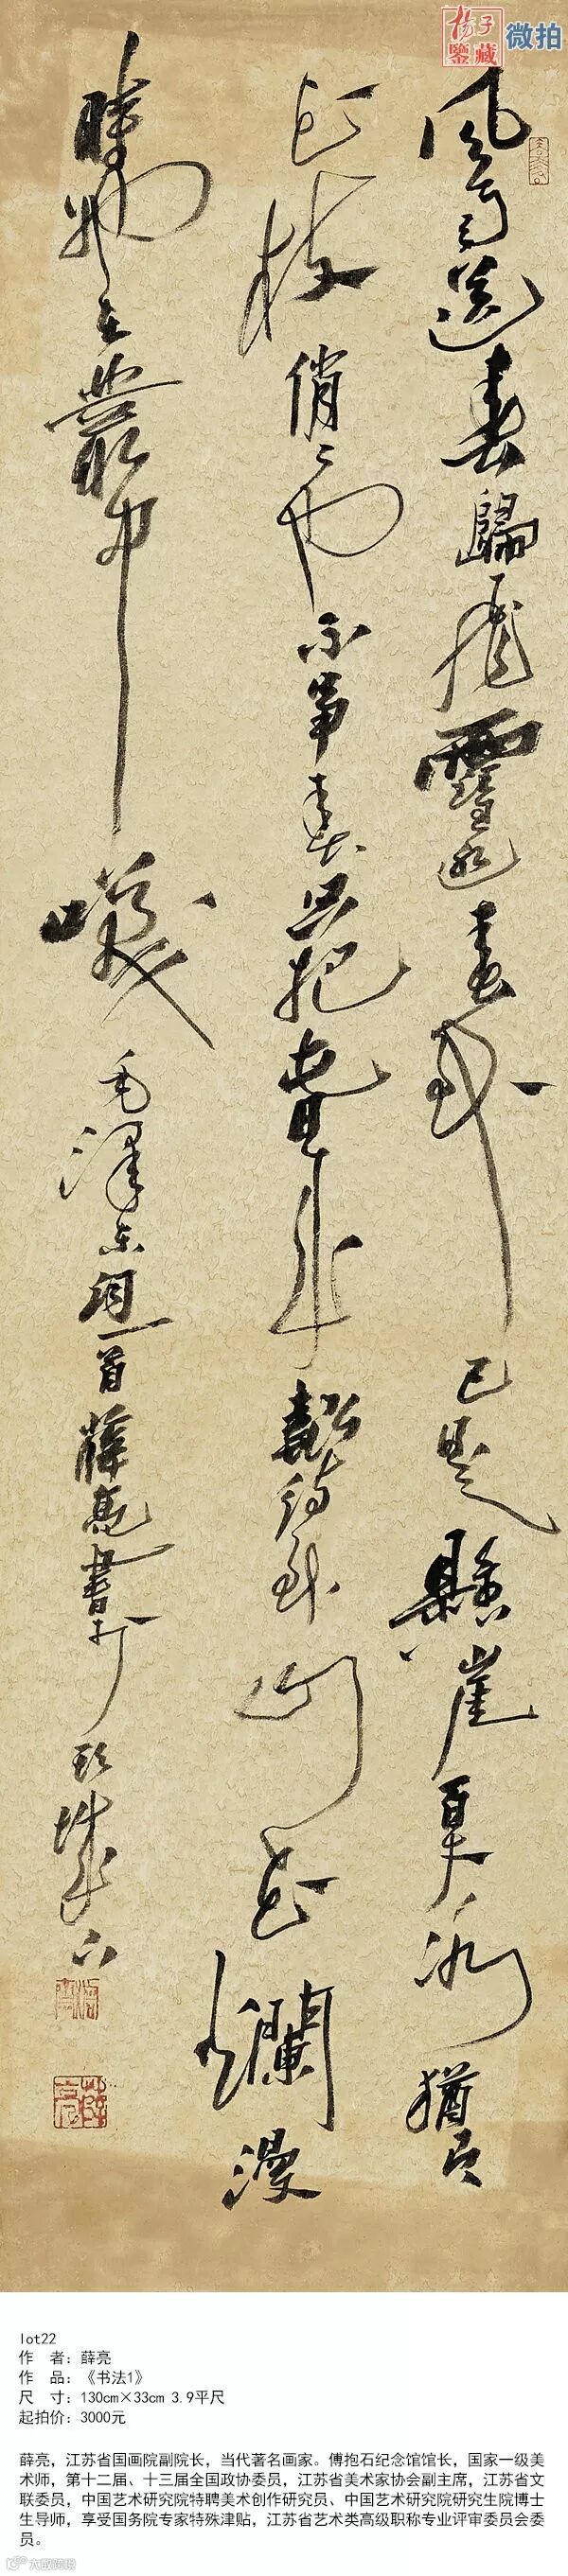 微拍
風雨送春歸飛雪迎春到已是懸崖百丈冰猶有
花枝俏〻也不爭春只把春來報待到山花爛漫
時她在叢中笑 毛澤東詞一首薛亮書於
薛亮
lot22
作 者：薛亮
作 品：《书法1》
尺 寸：130cm×33cm 3.9平尺
起拍价：3000元
薛亮，江苏省国画院副院长，当代著名画家。傅抱石纪念馆馆长，国家一级美
术师，第十二届、十三届全国政协委员，江苏省美术家协会副主席，江苏省文
联委员，中国艺术研究院特聘美术创作研究员、中国艺术研究院研究生院博士
生导师，享受国务院专家特殊津贴，江苏省艺术类高级职称专业评审委员会委
员。